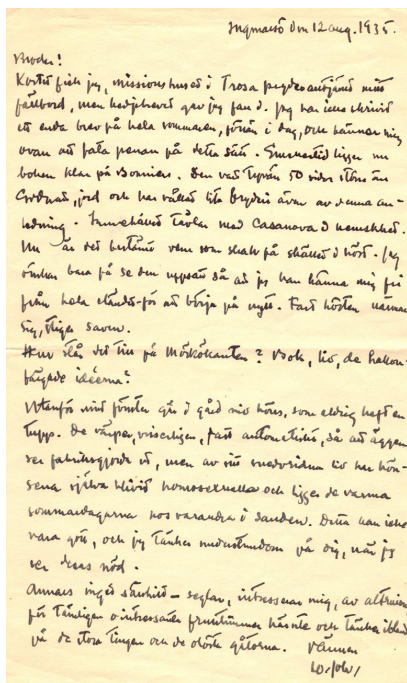 Ingmarsö den 12 aug. 1935.
Broder!
Kortet fick jag, missionshuset i Trosa
fällbord, men gav jag fan i. Jag har inte skrivit
ett enda brev på hela sommaren, förrän i dag, och känner mig
ovan att fatta pennan på detta sätt. Emellertid ligger nu
boken klar på Bonniers. Den vart tyvärr 50 sidor större än
Godnatt, jord och har vållat lite bryderi även av denna an-
ledning. Innehållet tävlar med Casanova i
Nu är det bestämt vem som skall på i höst. Jag
önskar bara få se den uppsatt så att jag kan känna mig fri
från hela för att börja på nytt. Fast hösten närmar
sig, stiger saven.
Hur står det till på Mörkökanten? Bok, liv, de hallon-
färgade idéerna?
Utanför mitt fönster gå i gård nio höns, som aldrig haft en
tupp. De värper, visserligen, fast automatiskt, så att äggen
ser fabriksgjorda ut, men av sitt liv har hön-
sena själva blivit homosexuella och ligger de varma
sommardagarna hos varandra i sanden. Detta kan icke
vara gott, och jag tänker på dig, när jag
ser deras nöd.
Annars inget – seglar, intresserar mig, av
för o intressanta fruntimmer och tänker ibland
på de stora tingen och de olösta gåtorna. Vännen